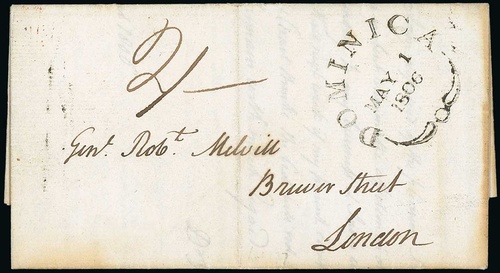 2/-
DOMINICA
MAY 1
1806
Genl. Robt. Melvill
Brewer Street
London